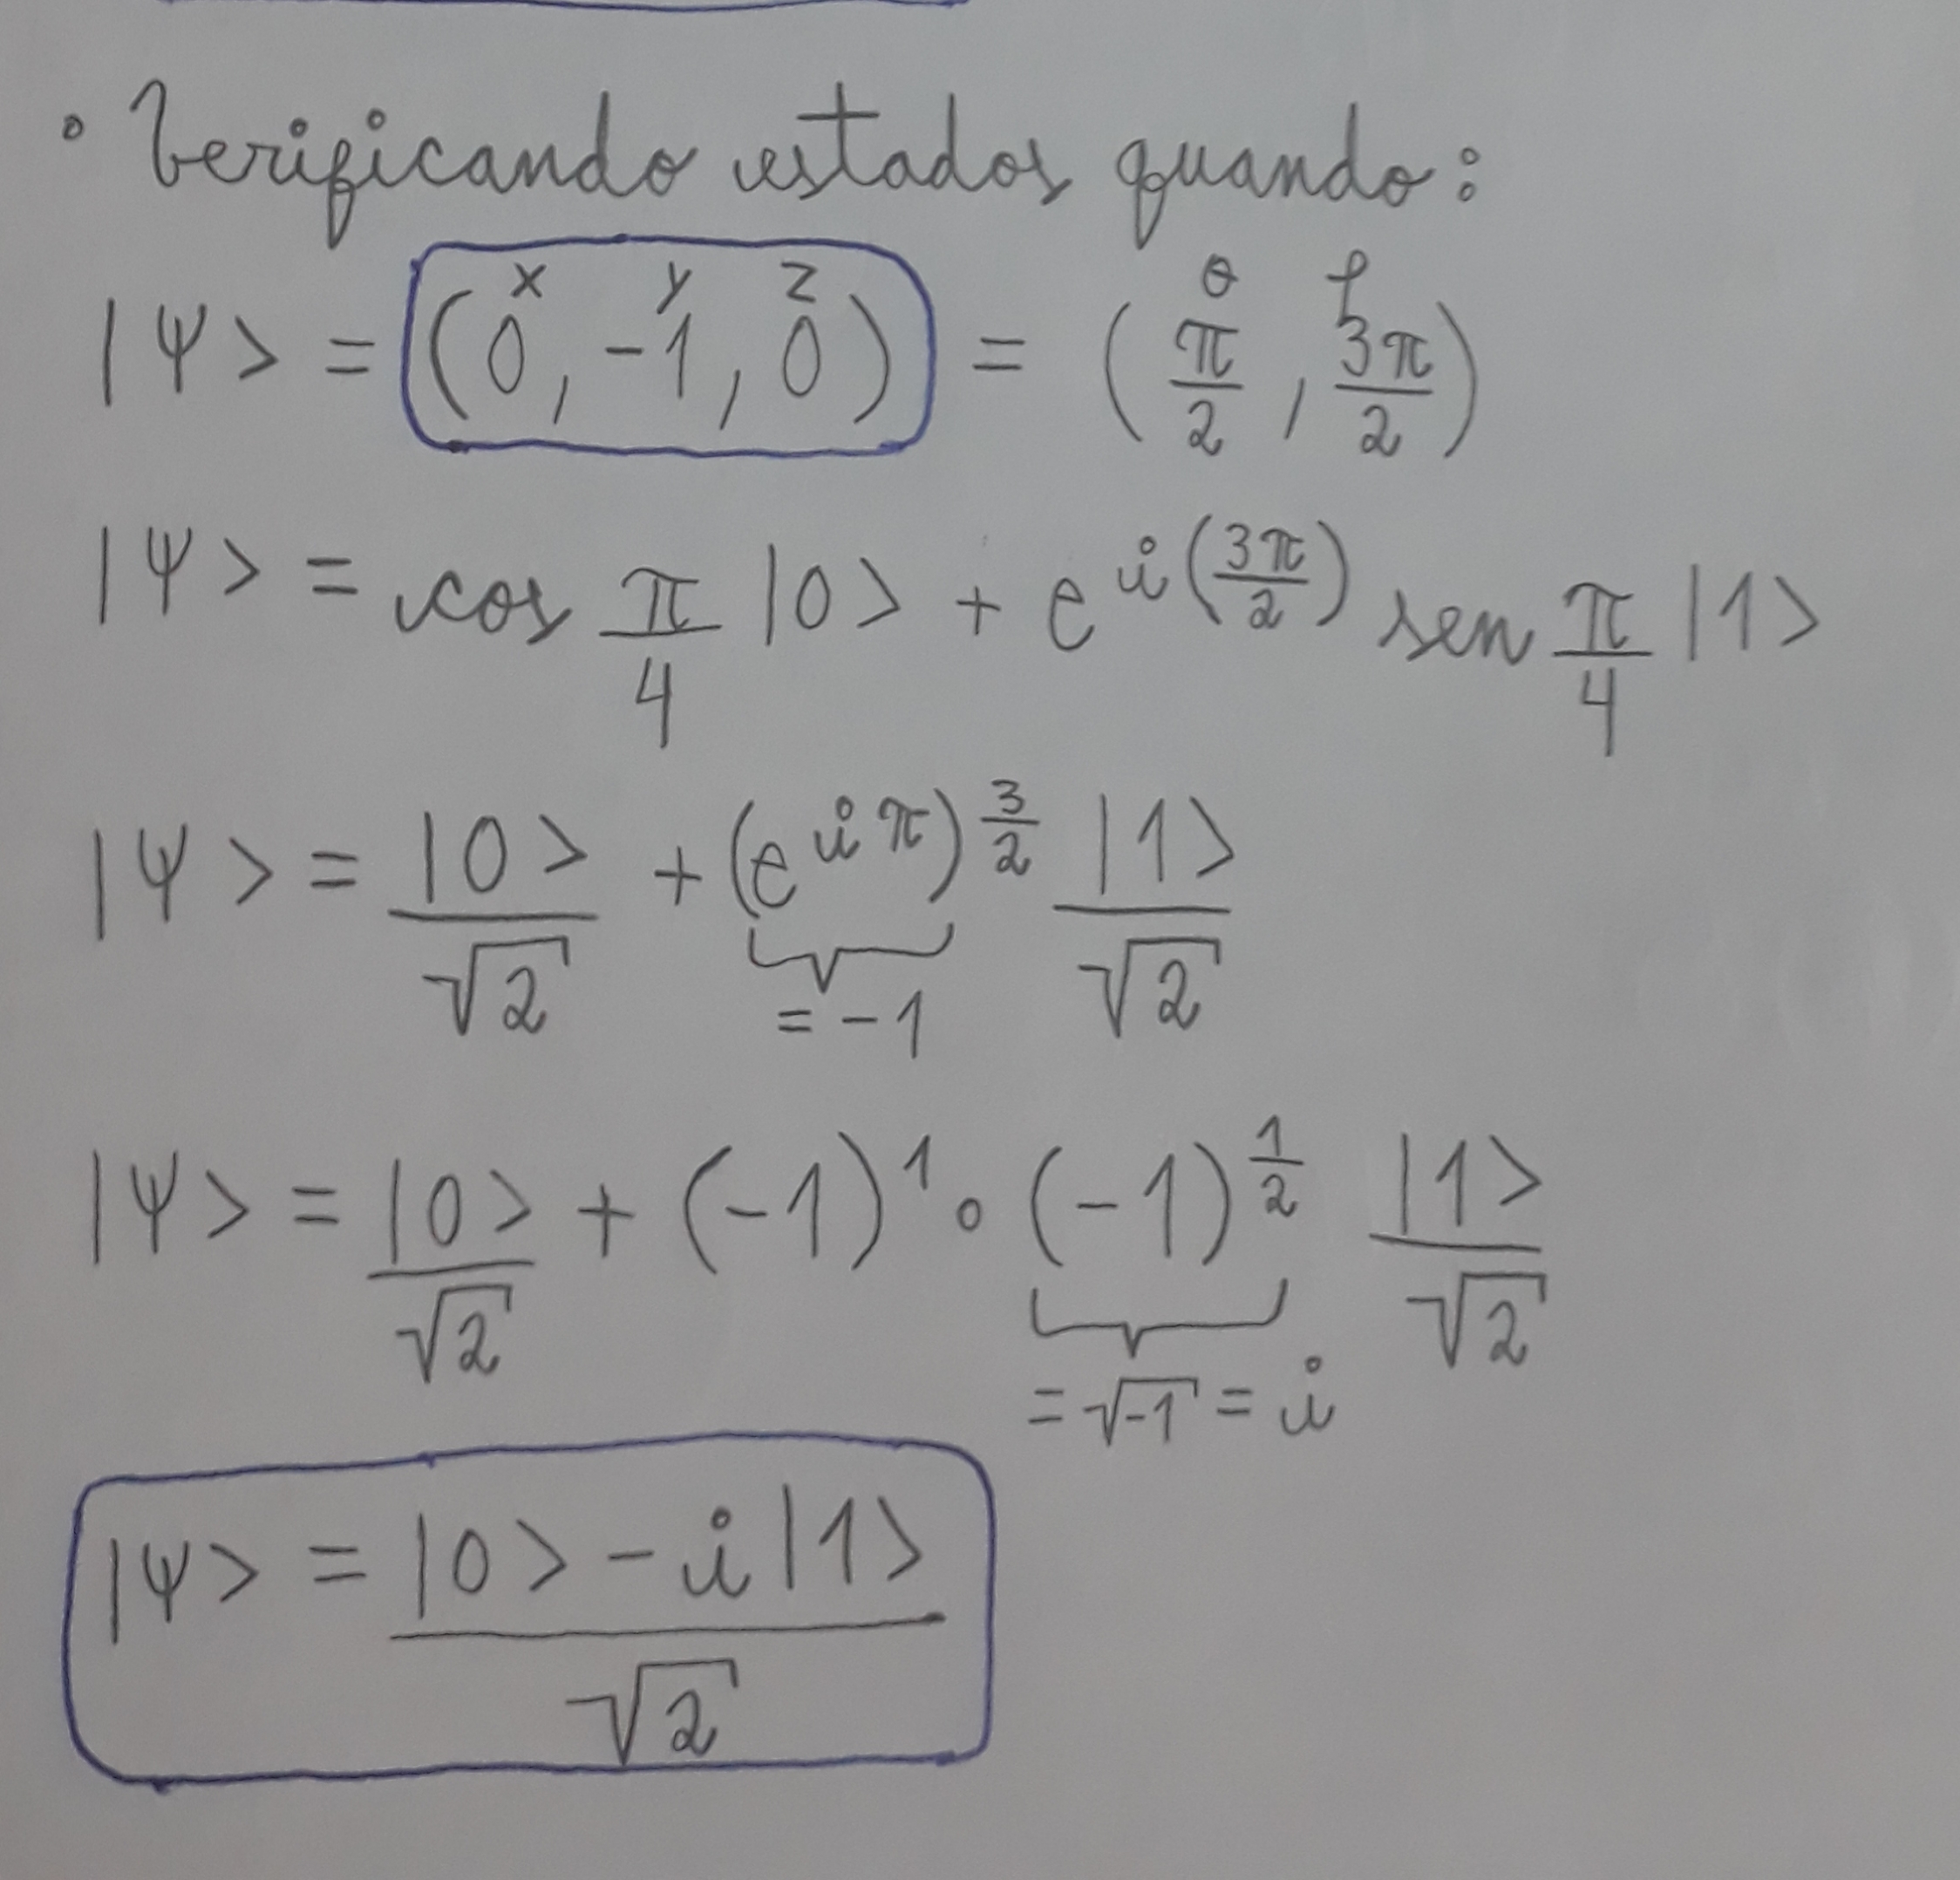 • Verificando estados quando:
|Ψ> = (0, -1, 0) = (π/2, 3π/2)
x y z θ φ
|Ψ> = cos π/4 |0> + e^{i(3π/2)} sen π/4 |1>
|Ψ> = |0>/√2 + (e^{iπ})^{3/2} |1>/√2
= -1
|Ψ> = |0>/√2 + (-1)^1 · (-1)^{1/2} |1>/√2
= √-1 = i
|Ψ> = (|0> - i|1>)/√2